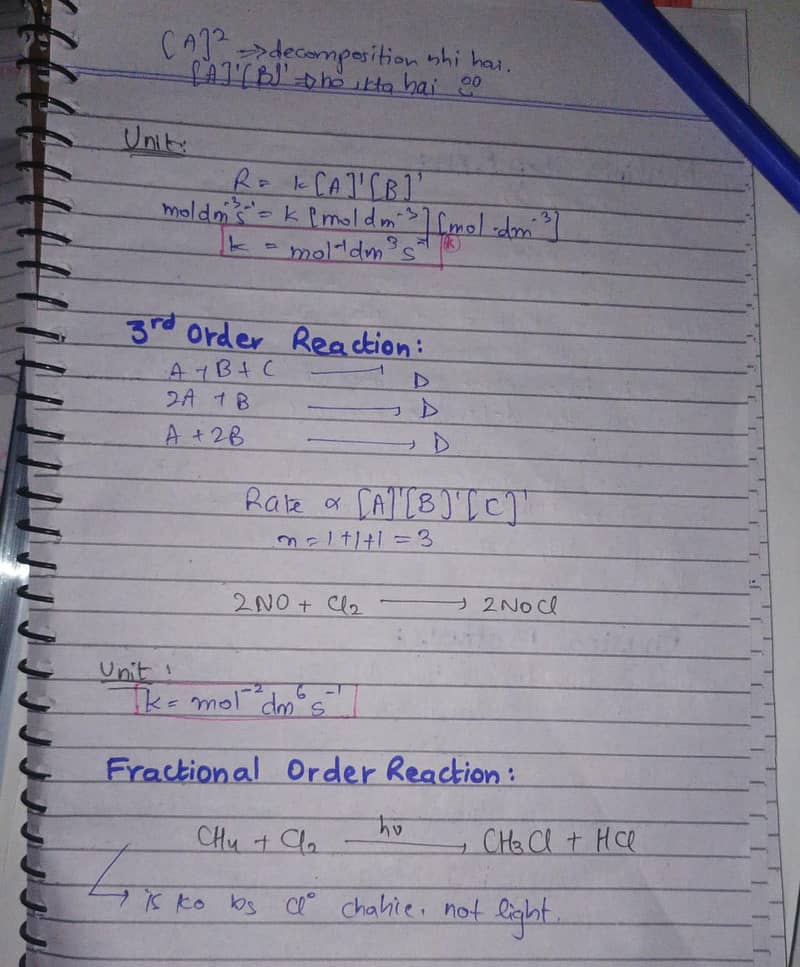 [A]² ⇒ decomposition nhi hai.
[A]¹[B]¹ ⇒ ho skta hai
Unit:
R = k[A]¹[B]¹
moldm⁻³s⁻¹ = k [moldm⁻³][mol·dm⁻³]
k = mol⁻¹dm³s⁻¹
3rd Order Reaction:
A + B + C ⟶ D
2A + B ⟶ D
A + 2B ⟶ D
Rate ∝ [A]¹[B]¹[C]¹
n = 1+1+1 = 3
2NO + Cl₂ ⟶ 2NOCl
Unit:
k = mol⁻² dm⁶ s⁻¹
Fractional Order Reaction:
hν
CH₄ + Cl₂ ⟶ CH₃Cl + HCl
is ko bs Cl° chahie, not light.